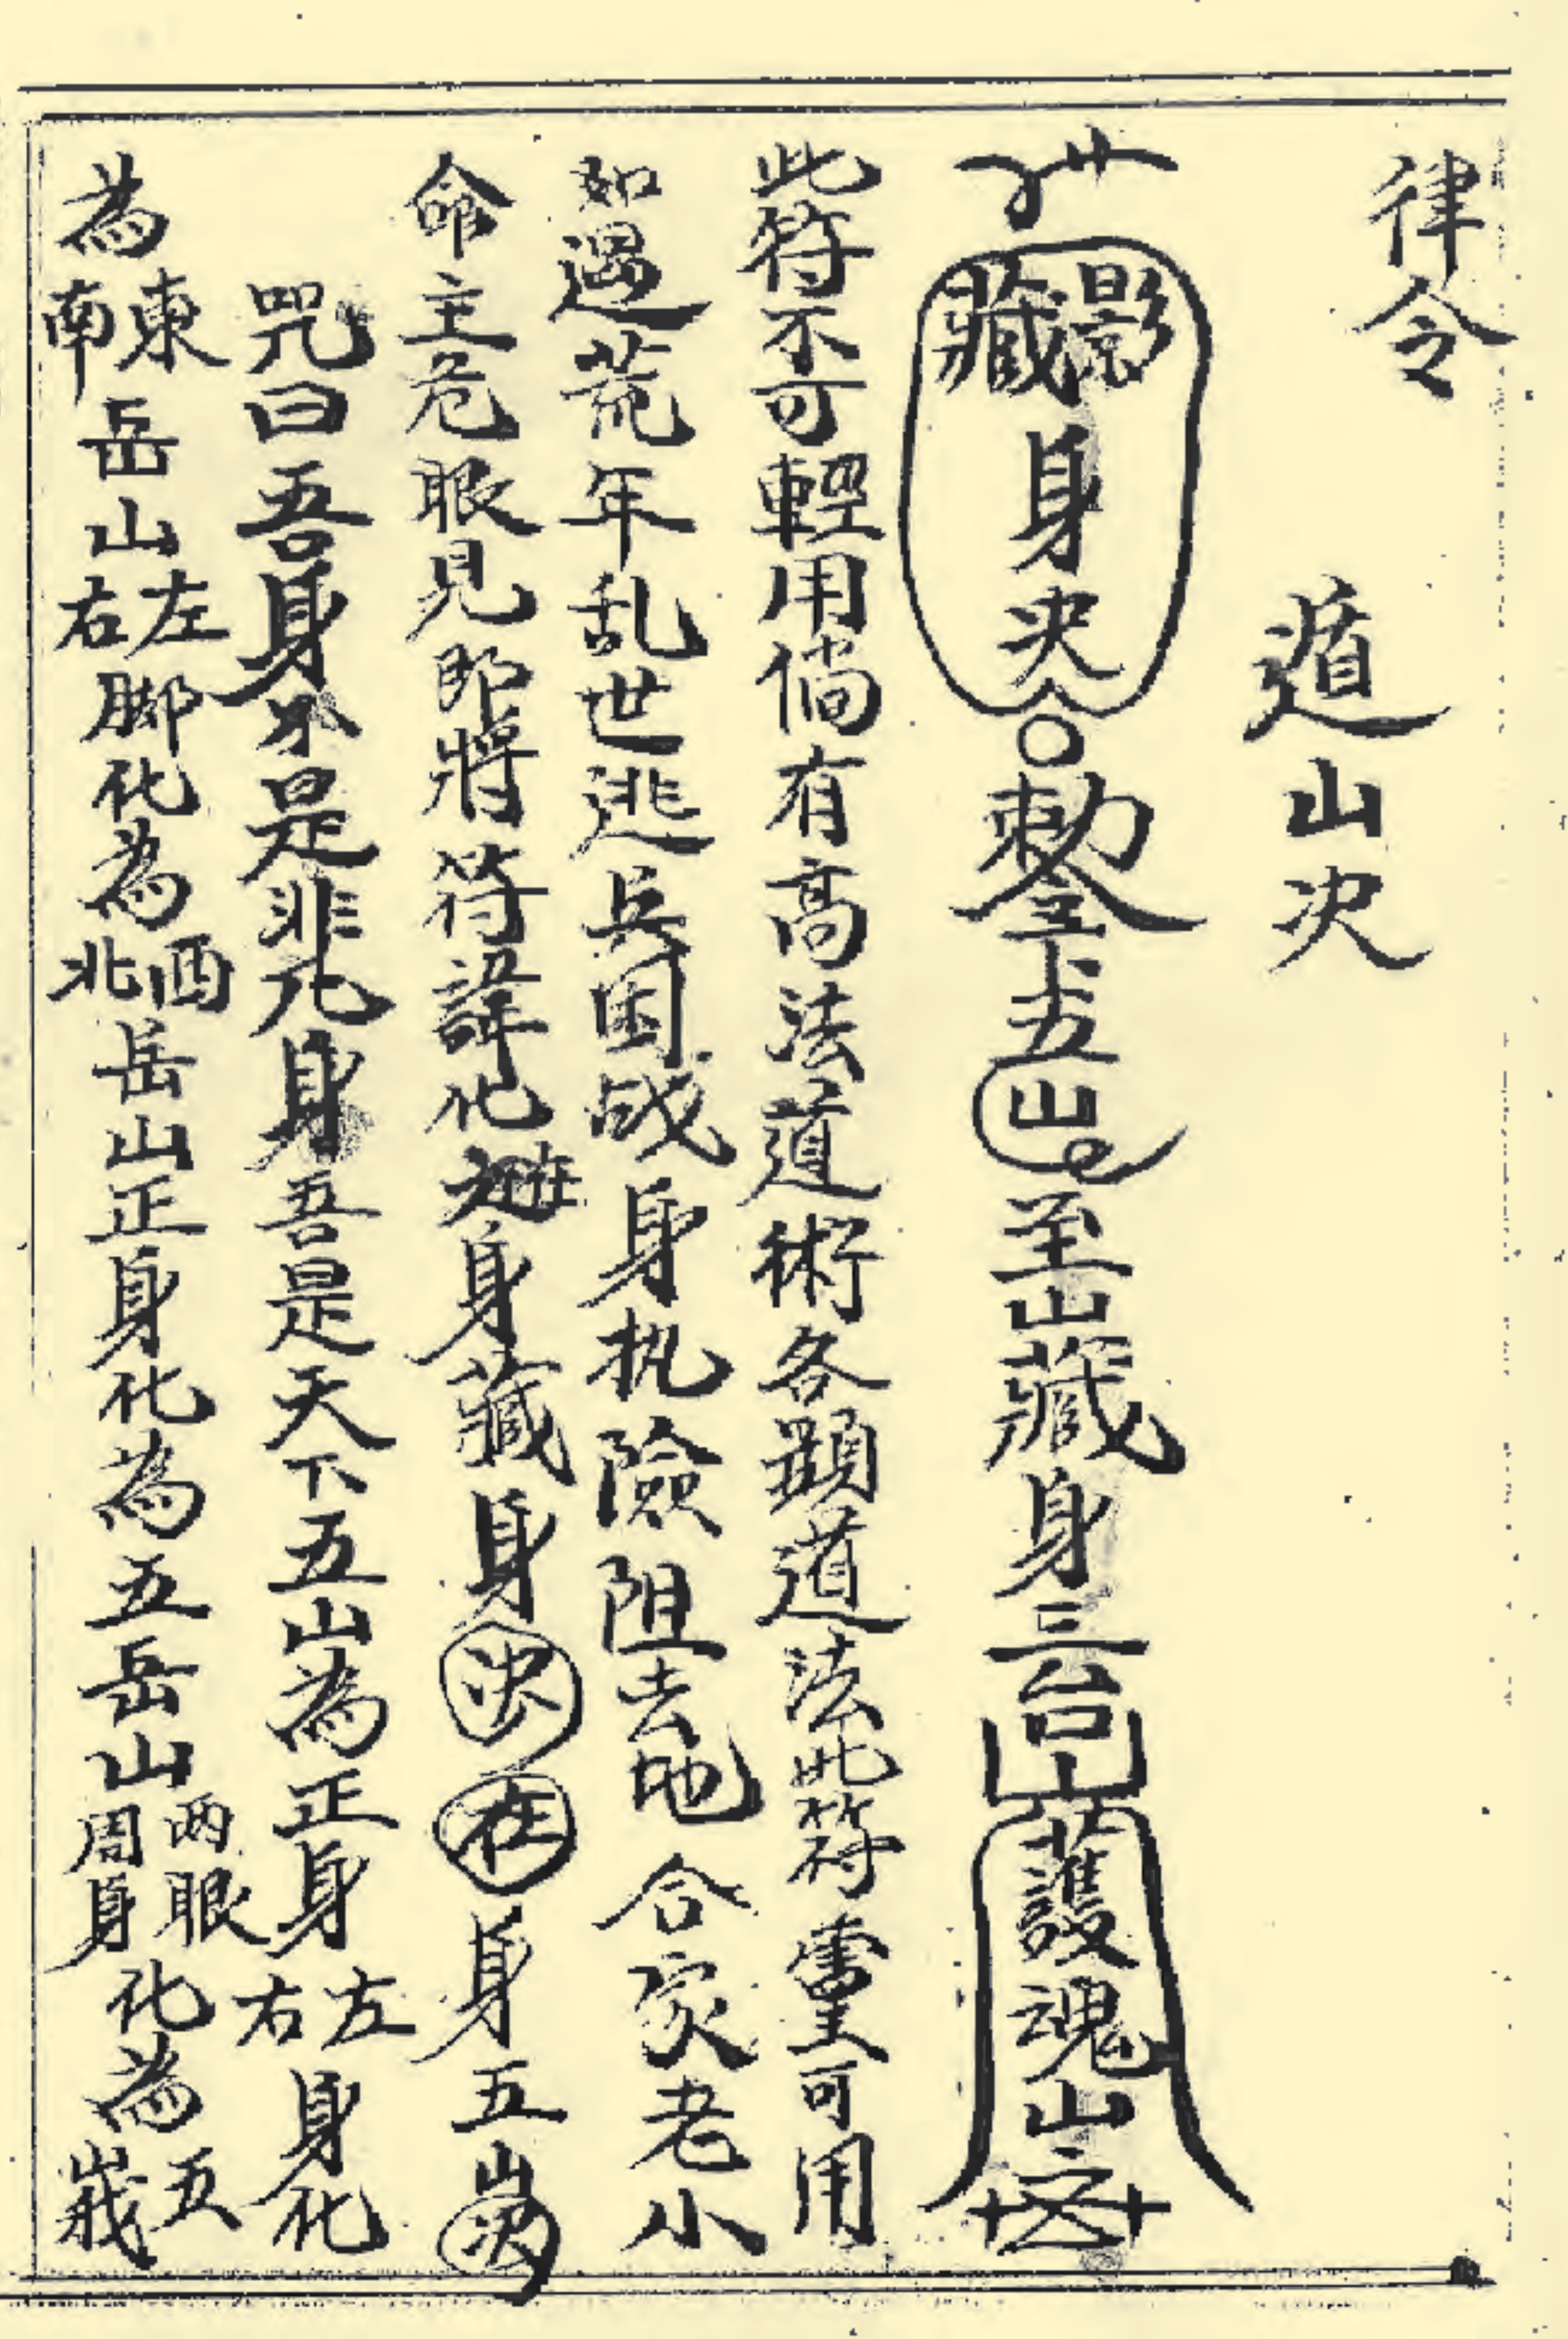 律令
遁山决
影藏身决勅令五山至山藏身三台山護魂山
此符不可輕用倘有高法道術各顕道法此符灵可用
如遇荒年乱世逃兵困战身执險阻去地合家老小
命主危眼見即將符諱化身藏身决在身五岳决
咒曰吾身不是非凡身吾是天下五山為正身左右身化
為東南岳山左右脚化為西北岳山正身化為五岳山两眼周身化為五峩